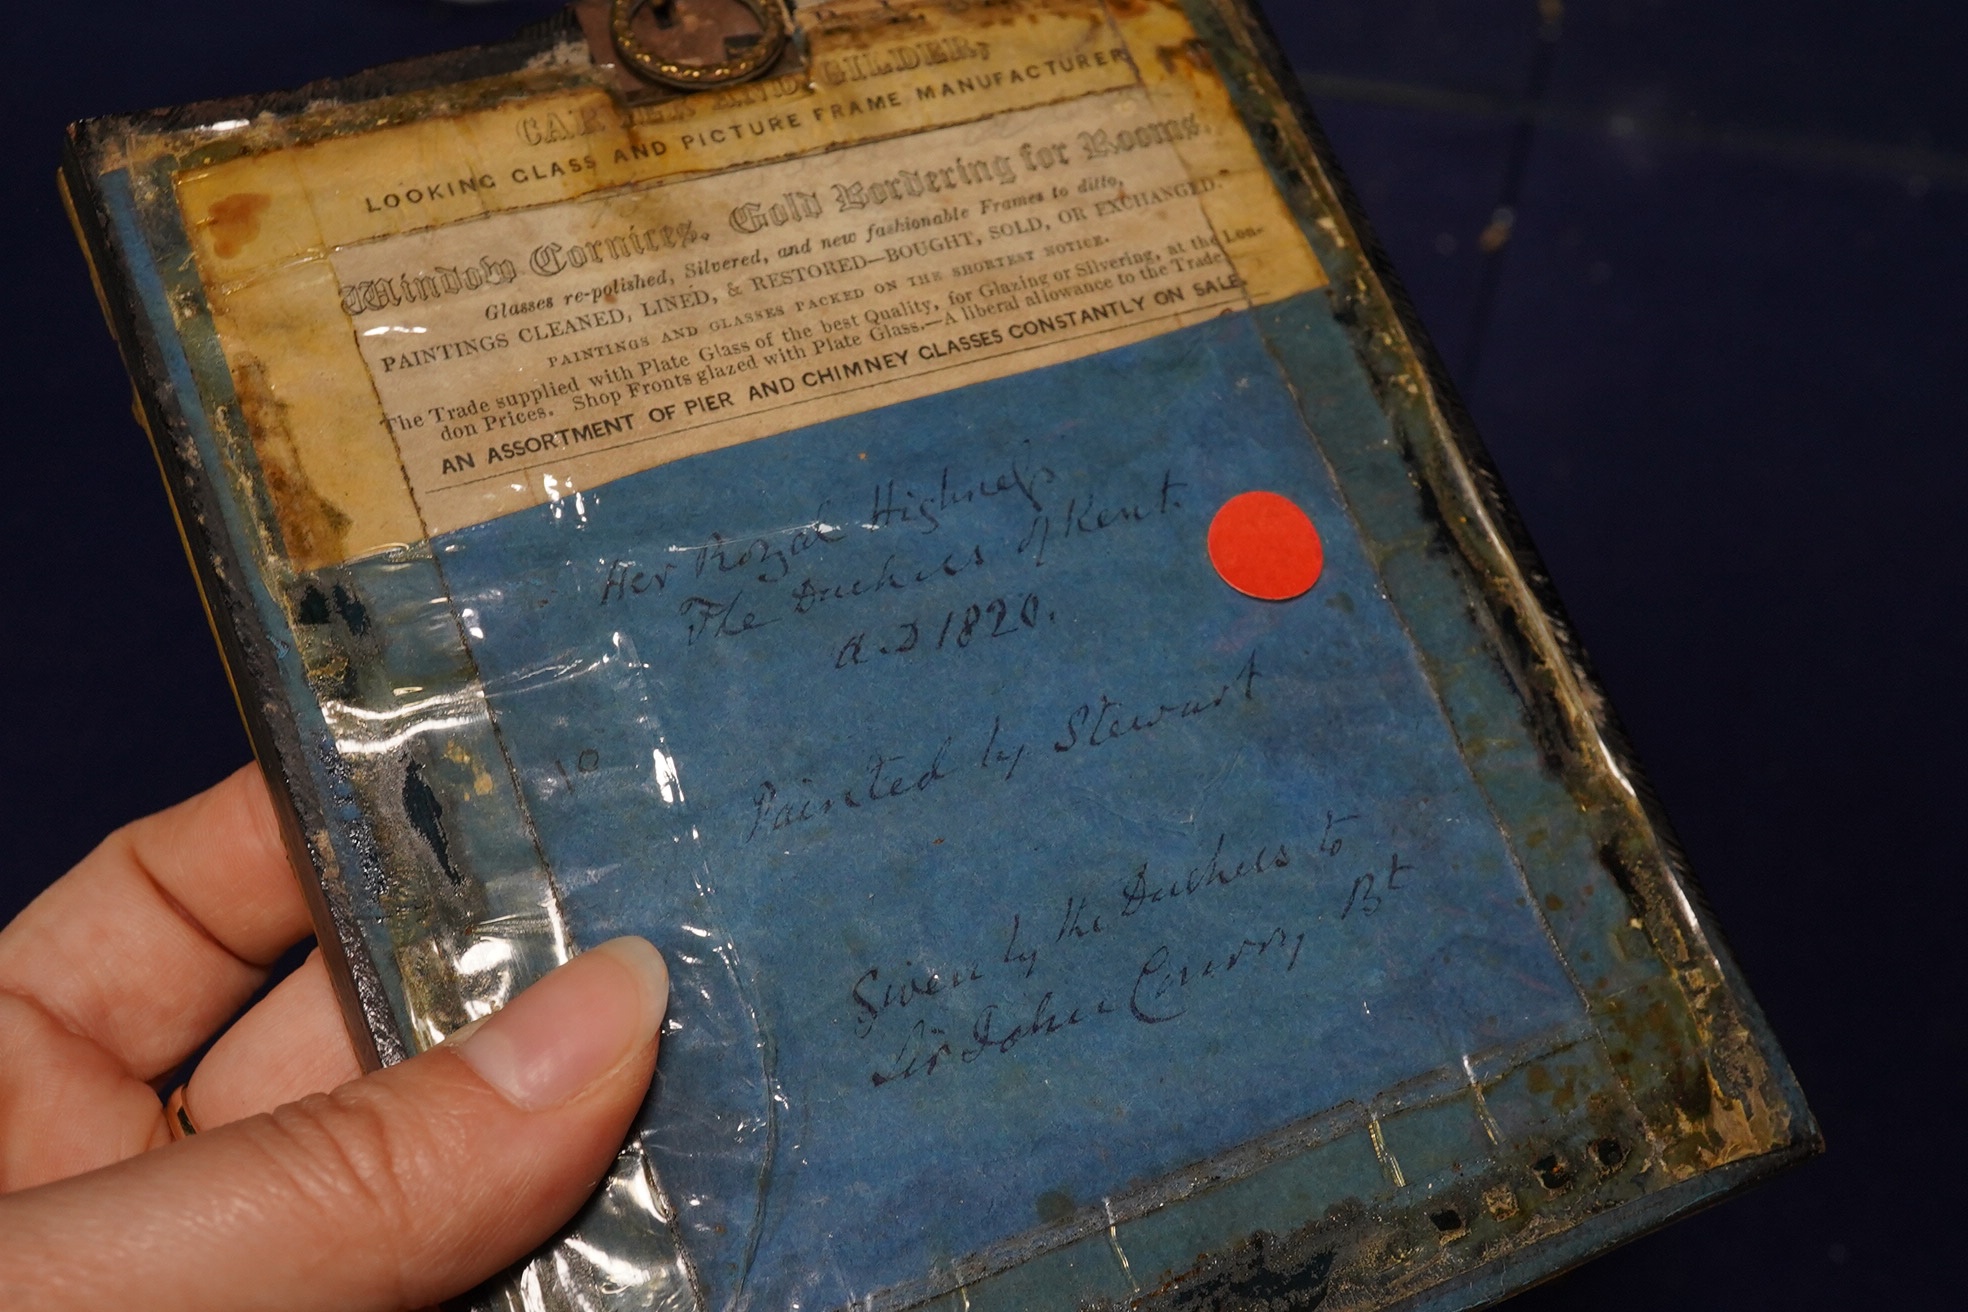 AND GILDER,
LOOKING GLASS AND PICTURE FRAME MANUFACTURER
Window Cornices. Gold Bordering for Rooms.
Glasses re-polished, Silvered, and new fashionable Frames to ditto,
PAINTINGS CLEANED, LINED, & RESTORED—BOUGHT, SOLD, OR EXCHANGED.
PAINTINGS AND GLASSES PACKED ON THE SHORTEST NOTICE.
The Trade supplied with Plate Glass of the best Quality, for Glazing or Silvering, at the Lon-
don Prices. Shop Fronts glazed with Plate Glass.—A liberal allowance to the Trade.
AN ASSORTMENT OF PIER AND CHIMNEY GLASSES CONSTANTLY ON SALE.
Her Royal Highness
The Duchess of Kent.
A.D 1820.
10
Painted by Stewart
Given by the Duchess to
Sir John Conroy Bt